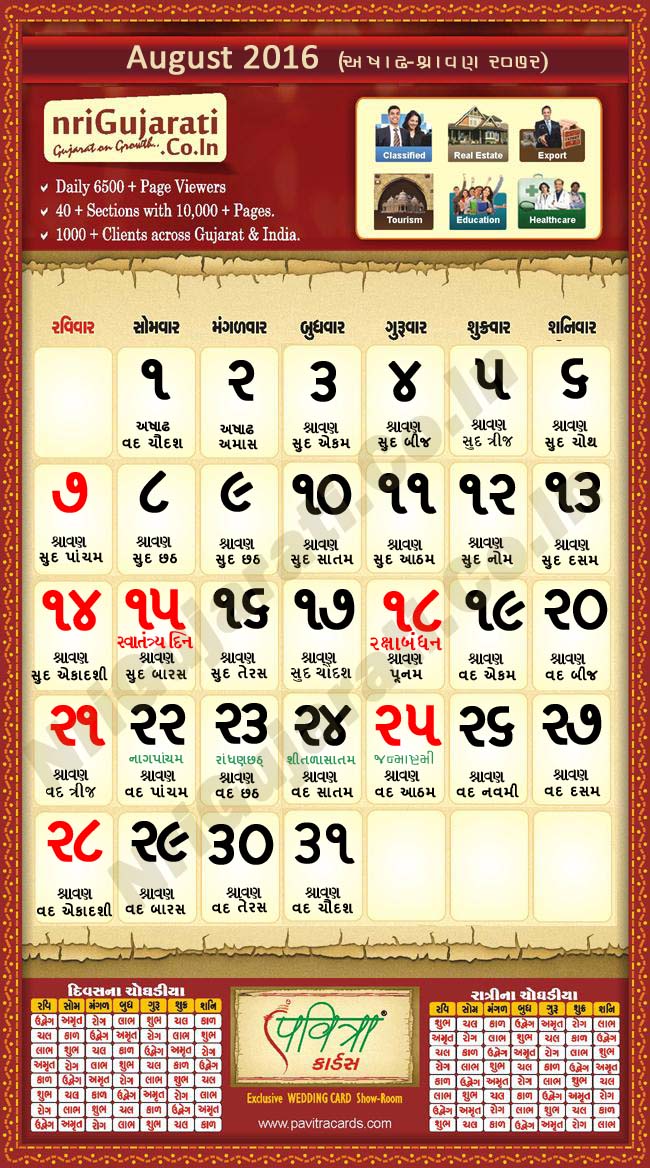 August 2016 (અષાઢ-શ્રાવણ ૨૦૭૨)
nriGujarati
Gujarat on Growth..
.Co.In
Daily 6500 + Page Viewers
40 + Sections with 10,000 + Pages.
1000 + Clients across Gujarat & India.
Classified Real Estate Export
Tourism Education Healthcare
રવિવાર સોમવાર મંગળવાર બુધવાર ગુરૂવાર શુક્રવાર શનિવાર
૧ ૨ ૩ ૪ ૫ ૬
અષાઢ અષાઢ શ્રાવણ શ્રાવણ શ્રાવણ શ્રાવણ
વદ ચૌદશ અમાસ સુદ એકમ સુદ બીજ સુદ ત્રીજ સુદ ચોથ
૭ ૮ ૯ ૧૦ ૧૧ ૧૨ ૧૩
શ્રાવણ શ્રાવણ શ્રાવણ શ્રાવણ શ્રાવણ શ્રાવણ શ્રાવણ
સુદ પાંચમ સુદ છઠ સુદ છઠ સુદ સાતમ સુદ આઠમ સુદ નોમ સુદ દસમ
૧૪ ૧૫ ૧૬ ૧૭ ૧૮ ૧૯ ૨૦
સ્વાતંત્ર્ય દિન રક્ષાબંધન
શ્રાવણ શ્રાવણ શ્રાવણ શ્રાવણ શ્રાવણ શ્રાવણ શ્રાવણ
સુદ એકાદશી સુદ બારસ સુદ તેરસ સુદ ચૌદશ પૂનમ વદ એકમ વદ બીજ
૨૧ ૨૨ ૨૩ ૨૪ ૨૫ ૨૬ ૨૭
નાગપાંચમ રાંધણછઠ્ઠ શીતળાસાતમ જન્માષ્ટમી
શ્રાવણ શ્રાવણ શ્રાવણ શ્રાવણ શ્રાવણ શ્રાવણ શ્રાવણ
વદ ત્રીજ વદ પાંચમ વદ છઠ વદ સાતમ વદ આઠમ વદ નવમી વદ દસમ
૨૮ ૨૯ ૩૦ ૩૧
શ્રાવણ શ્રાવણ શ્રાવણ શ્રાવણ
વદ એકાદશી વદ બારસ વદ તેરસ વદ ચૌદશ
દિવસના ચોઘડીયા
રવિ સોમ મંગળ બુધ ગુરૂ શુક્ર શનિ
ઉદ્વેગ અમૃત રોગ લાભ શુભ ચલ કાળ
ચલ કાળ ઉદ્વેગ અમૃત રોગ લાભ શુભ
લાભ શુભ ચલ કાળ ઉદ્વેગ અમૃત રોગ
અમૃત રોગ લાભ શુભ ચલ કાળ ઉદ્વેગ
કાળ ઉદ્વેગ અમૃત રોગ લાભ શુભ ચલ
શુભ ચલ કાળ ઉદ્વેગ અમૃત રોગ લાભ
રોગ લાભ શુભ ચલ કાળ ઉદ્વેગ અમૃત
ઉદ્વેગ અમૃત રોગ લાભ શુભ ચલ કાળ
પવિત્રા®
કાર્ડસ
Exclusive WEDDING CARD Show-Room
www.pavitracards.com
રાત્રીના ચોઘડીયા
રવિ સોમ મંગળ બુધ ગુરૂ શુક્ર શનિ
શુભ ચલ કાળ ઉદ્વેગ અમૃત રોગ લાભ
અમૃત રોગ લાભ શુભ ચલ કાળ ઉદ્વેગ
ચલ કાળ ઉદ્વેગ અમૃત રોગ લાભ શુભ
રોગ લાભ શુભ ચલ કાળ ઉદ્વેગ અમૃત
કાળ ઉદ્વેગ અમૃત રોગ લાભ શુભ ચલ
લાભ શુભ ચલ કાળ ઉદ્વેગ અમૃત રોગ
ઉદ્વેગ અમૃત રોગ લાભ શુભ ચલ કાળ
શુભ ચલ કાળ ઉદ્વેગ અમૃત રોગ લાભ
Nrigujarati.Co.In
Nrigujarati.Co.In